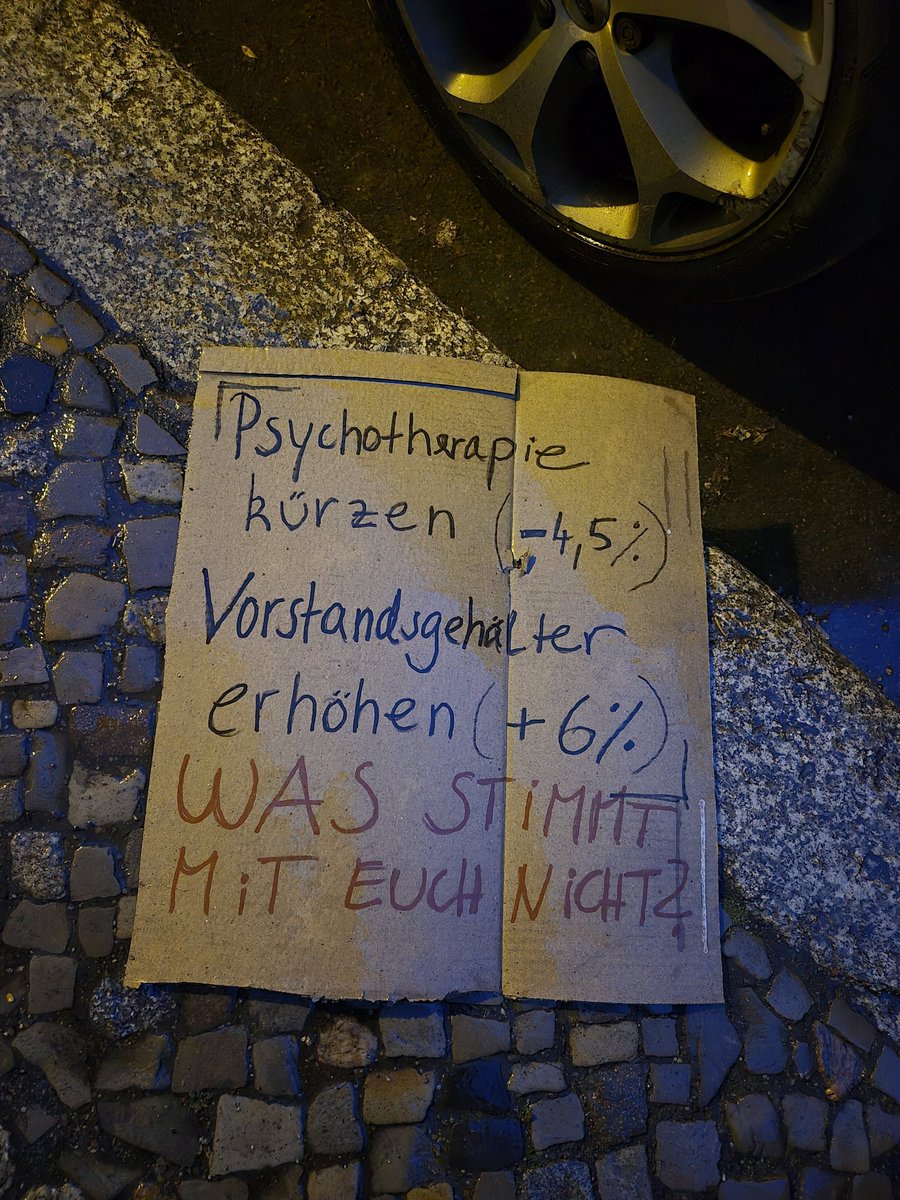 Psychotherapie
kürzen (-4,5%)
Vorstandsgehälter
erhöhen (+6%)
WAS STiMMT
MiT EUCH NiCHT?